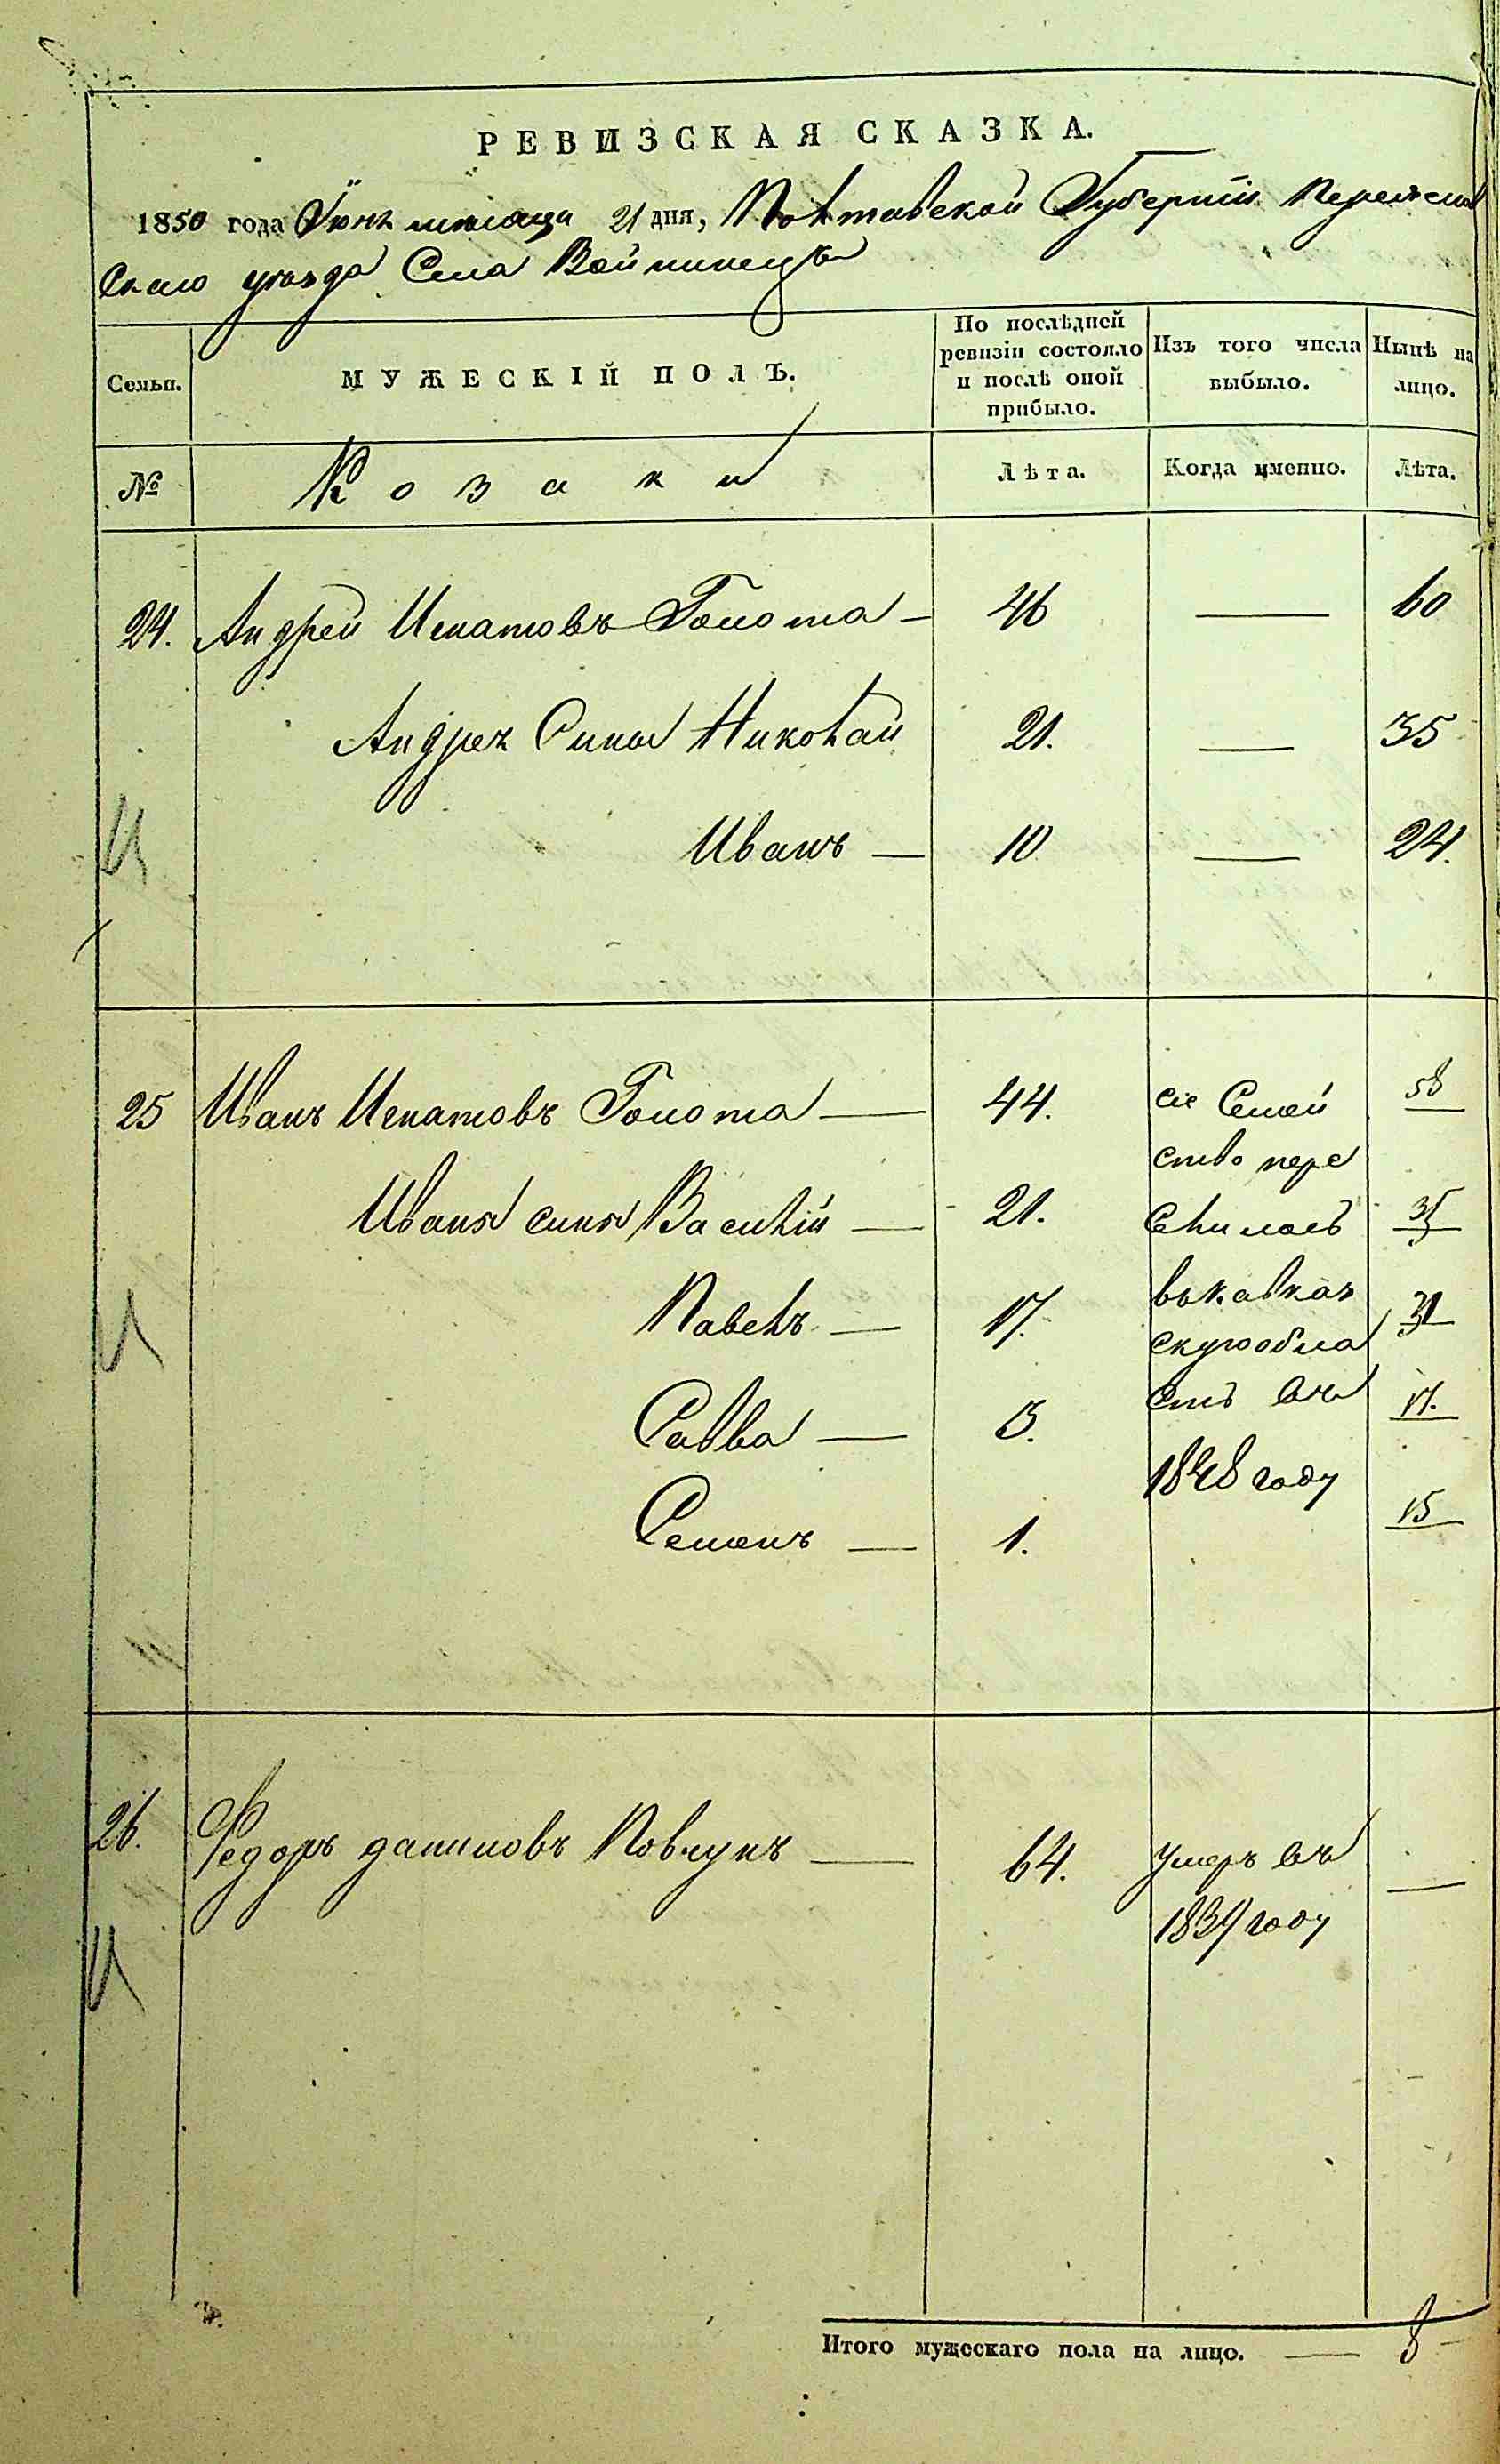 РЕВИЗСКАЯ СКАЗКА.
1850 года Іюня месяца 21 дня, Полтавской Губерніи Переяслав
скаго уезда Села Войтинецъ
Семьи.
МУЖЕСКІЙ ПОЛЪ.
По послѣдней ревизіи состояло и послѣ оной прибыло.
Изъ того числа выбыло.
Нынѣ на лицо.
№
Козаки
Лѣта.
Когда именно.
Лѣта.
24. Андрей Игнатовъ Голота — 46 — 60
Андрея Сины Николай 21. — 35
Иванъ — 10 — 24.
25 Иванъ Игнатовъ Голота — 44. сіе Семей 58
ство пере
Ивана сины Василій — 21. Силилось 35
Павелъ — 17. въ Кавказ 31
скую обла
Савва — 3. сть въ 17.
1848 году
Семенъ — 1. 15
26. Федоръ даниловъ Ковчунъ — 64. умеръ въ —
1839 году
Итого мужескаго пола на лицо. — 8